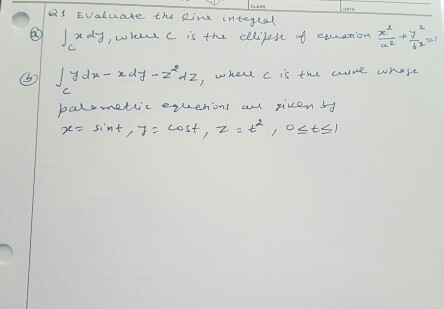 CLASS DATE
Q1 Evaluate the line integral
(a) ∫_C x dy, where C is the ellipse of equation x²/a² + y²/b² = 1
(b) ∫_C y dx - x dy - z² dz, where C is the curve whose
parametric equations are given by
x = sint, y = cost, z = t², 0 ≤ t ≤ 1